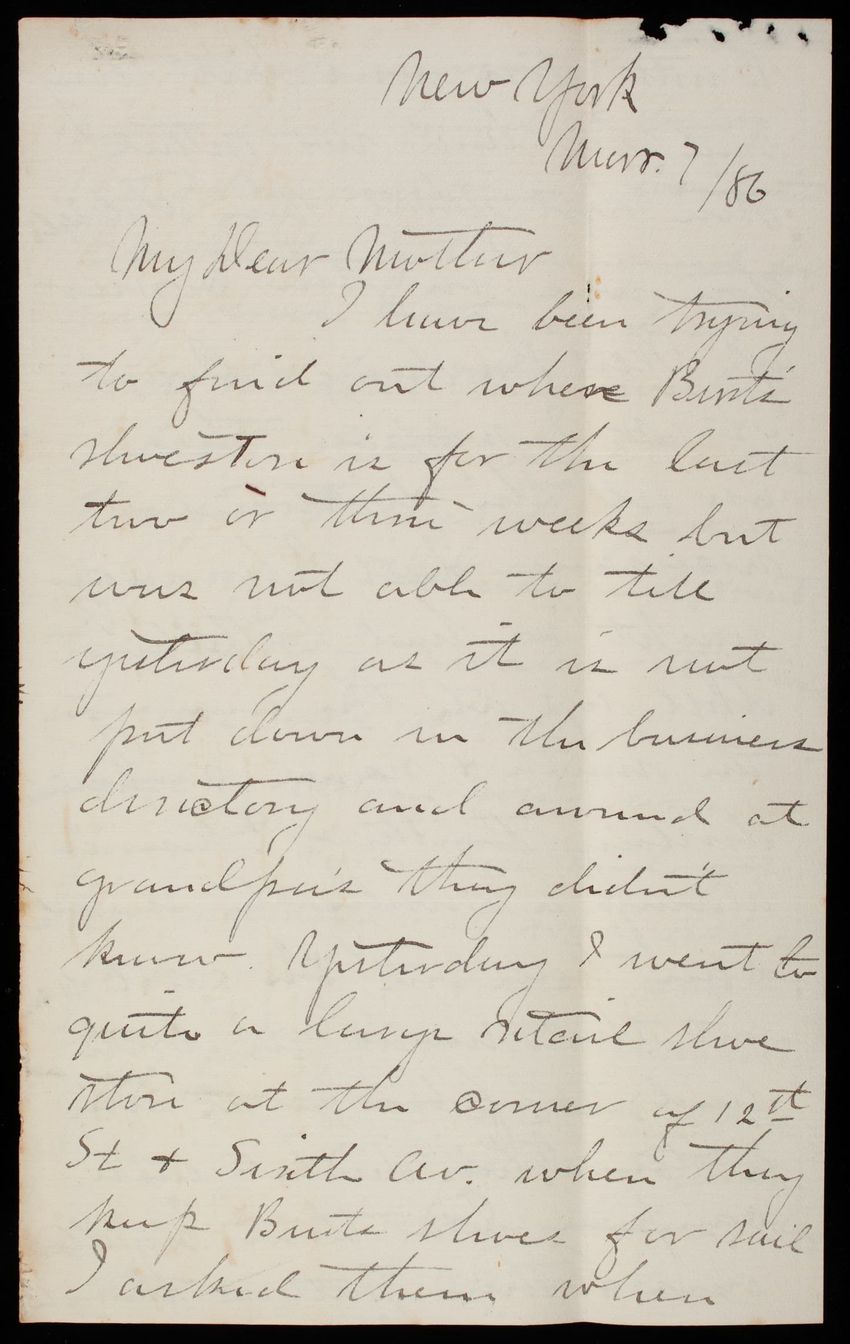 New York
Mar. 7/86
My Dear Mother
I have been trying
to find out where Burt's
shoestore is for the last
two or three weeks but
was not able to till
yesterday as it is not
put down in the business
directory and around at
grandpa's they didn't
know. Yesterday I went to
quite a large retail shoe
store at the corner of 12th
St & Sixth Av. where they
keep Burts shoes for sail
I asked them where